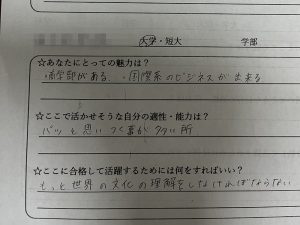 大学・短大 学部
☆あなたにとっての魅力は？
・商学部がある、・国際系のビジネスが出来る
☆ここで活かせそうな自分の適性・能力は？
パッと思いつく事が多い所
☆ここに合格して活躍するためには何をすればいい？
もっと世界の文化の理解をしなければならない